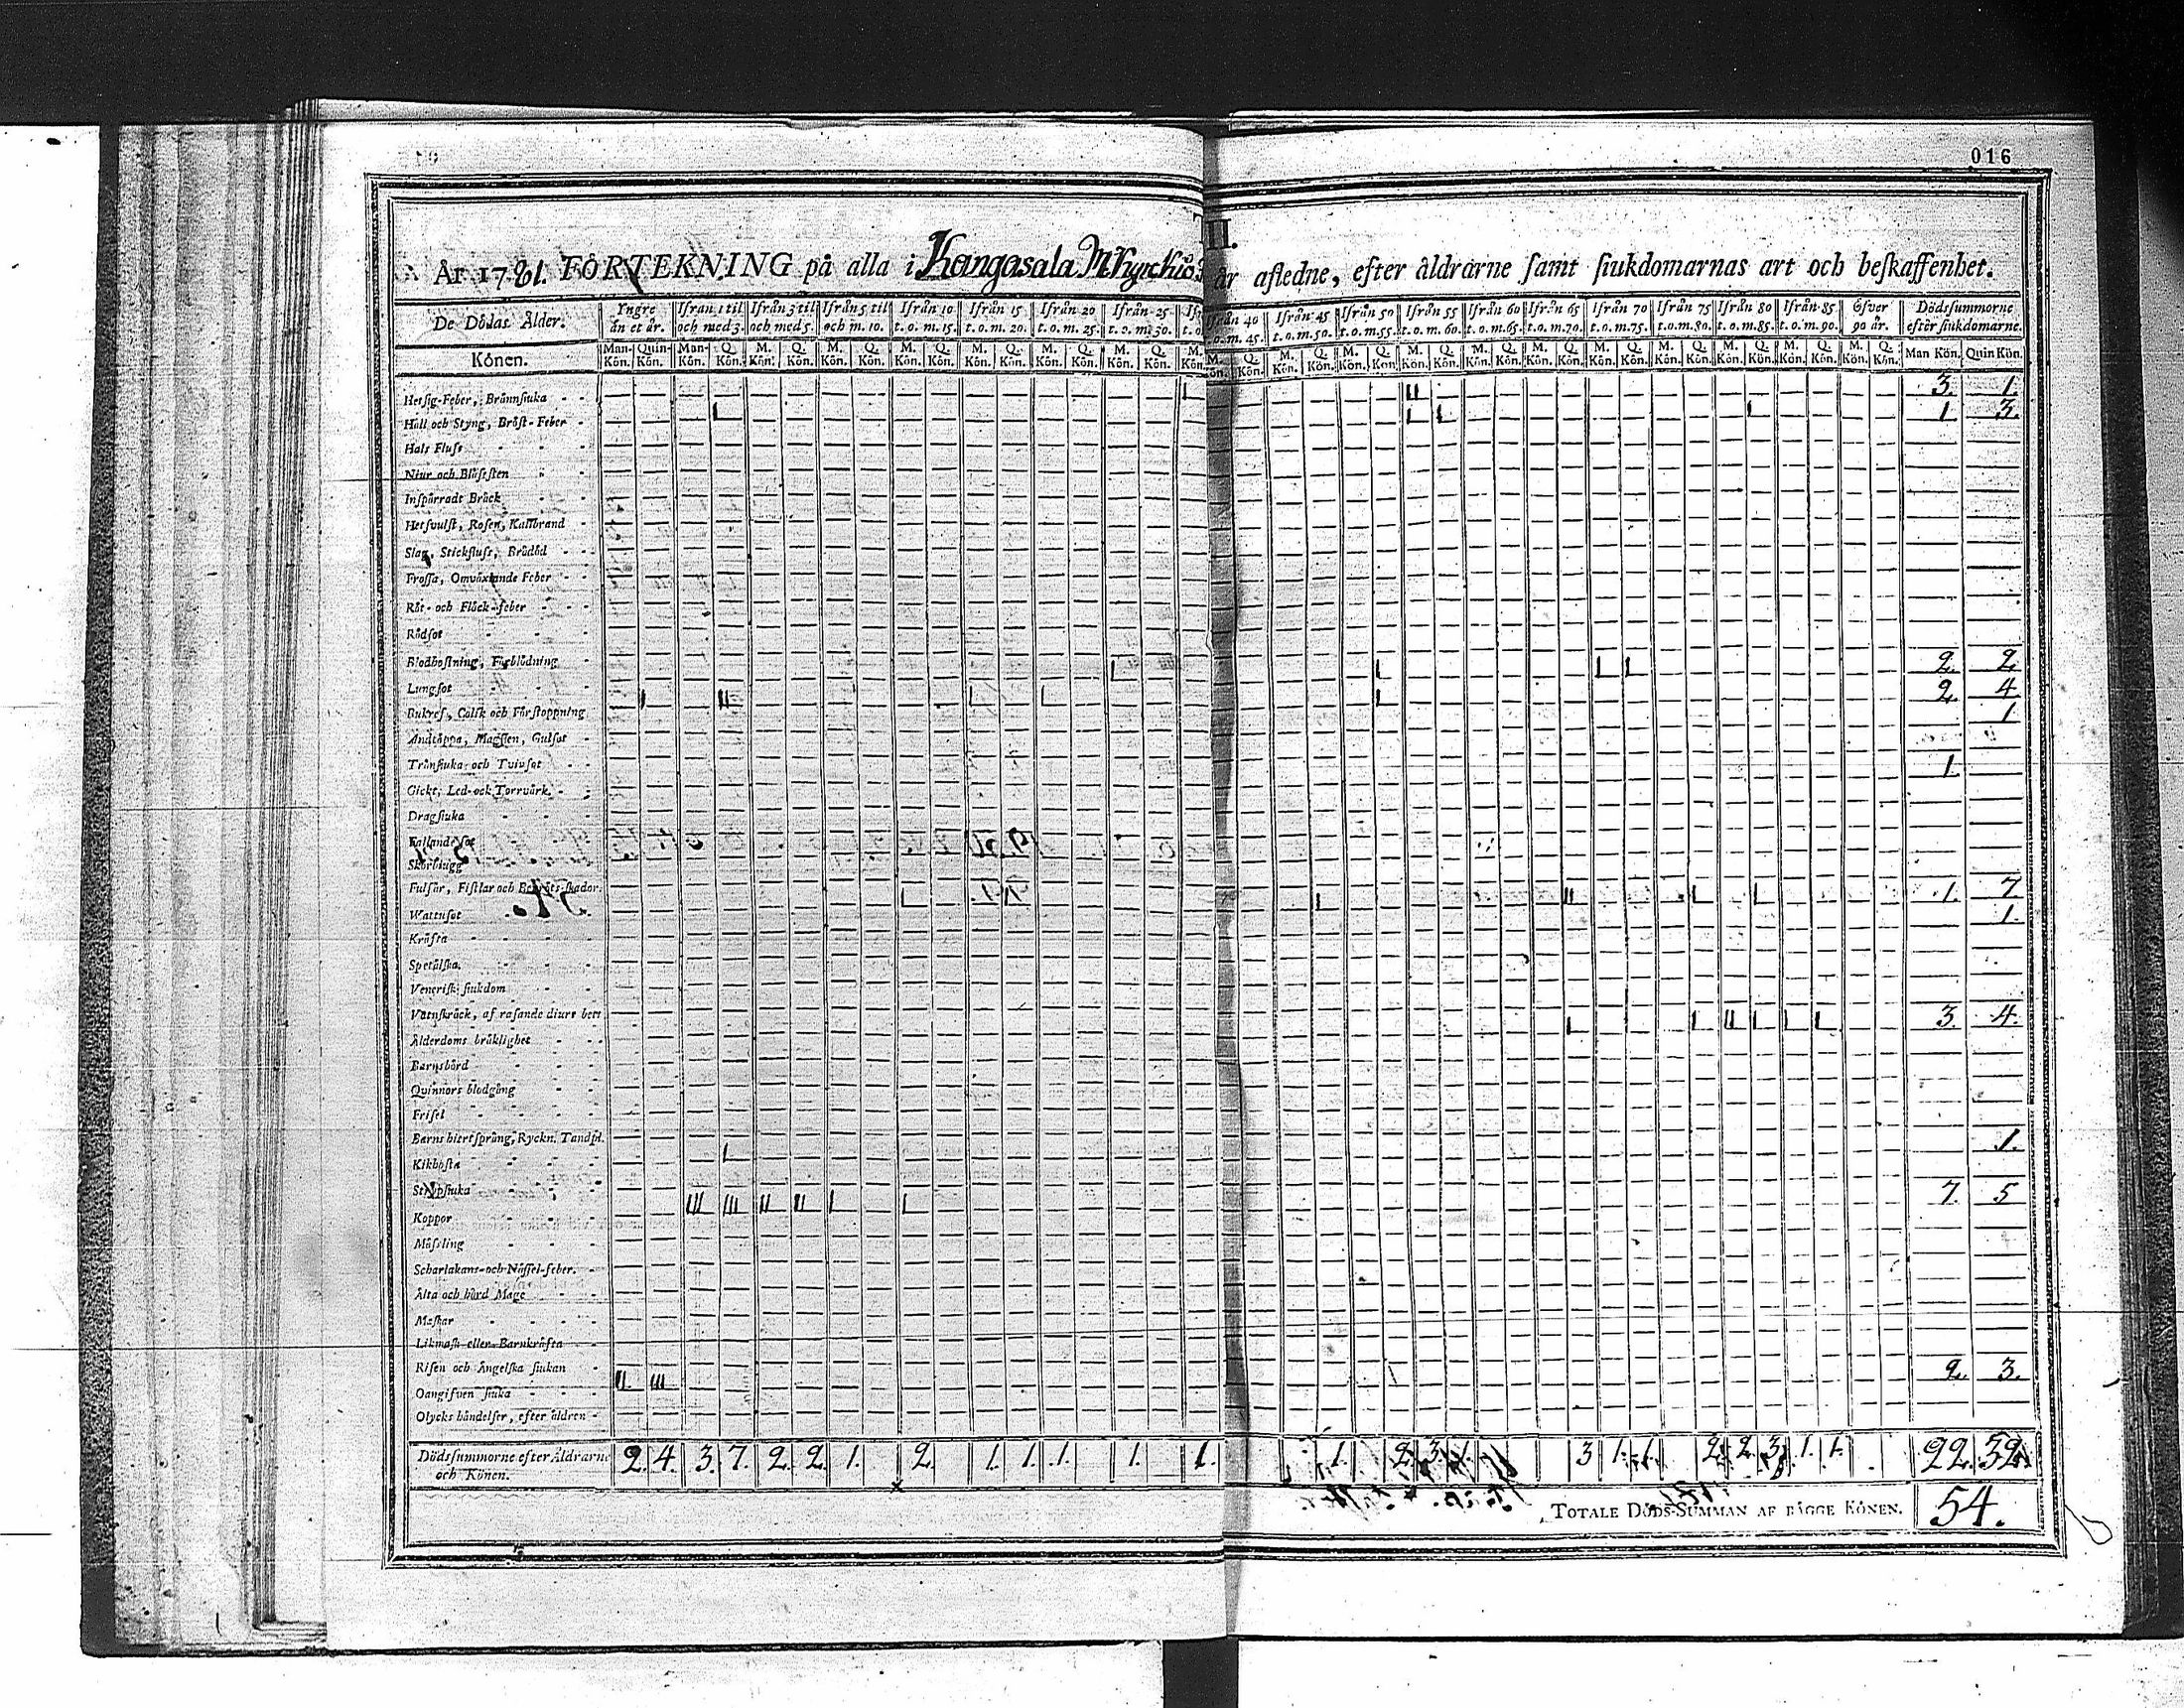 016
II.
År 1781. FÖRTEKNING på alla i Kangasala M: Kyrckio år afledne, efter åldrarne samt siukdomarnas art och beskaffenhet.
De Dödas Ålder. Yngre än et år. Ifrån 1 til och med 3. Ifrån 3 til och med 5. Ifrån 5 til och m. 10. Ifrån 10 t. o. m. 15. Ifrån 15 t. o. m. 20. Ifrån 20 t. o. m. 25. Ifrån 25 t. o. m. 30. Ifrån 40 t. o. m. 45. Ifrån 45 t. o. m. 50. Ifrån 50 t. o. m. 55. Ifrån 55 t. o. m. 60. Ifrån 60 t. o. m. 65. Ifrån 65 t. o. m. 70. Ifrån 70 t. o. m. 75. Ifrån 75 t. o. m. 80. Ifrån 80 t. o. m. 85. Ifrån 85 t. o. m. 90. Öfver 90 år. Dödssummorne efter siukdomarne.
Könen. Man-Kön. Quin-Kön. Man-Kön. Q. Kön. M. Kön. Q. Kön. M. Kön. Q. Kön. M. Kön. Q. Kön. M. Kön. Q. Kön. M. Kön. Q. Kön. M. Kön. Q. Kön. M. Kön. M. Kön. Q. Kön. M. Kön. Q. Kön. M. Kön. Q. Kön. M. Kön. Q. Kön. M. Kön. Q. Kön. M. Kön. Q. Kön. M. Kön. Q. Kön. M. Kön. Q. Kön. M. Kön. Q. Kön. M. Kön. Q. Kön. M. Kön. Q. Kön. Man Kön. Quin Kön.
Hetsig-Feber, Brännsiuka I II 3. 1.
Håll och Styng, Bröst-Feber I I I I 1 3.
Hals Fluss
Niur och Blåssten
Inspärradt Bråck
Hetsvulst, Rosen, Kallbrand
Slag, Stickfluss, Brådöd
Frossa, Omväxlande Feber
Röt- och Fläck-feber
Rödsot
Blodhostning, Förblödning I I I I 2. 2.
Lungsot I II I I I 2. 4.
Bukref, Colik och Förstoppning 1.
Andtäppa, Magsten, Gulsot
Trånsiuka och Tvinsot 1.
Gickt, Led- och Torrvärk.
Dragsiuka
Fallande sot
Skörbiugg
Fulsår, Fistlar och Benröts-skador. I I II I I 1. 7.
Wattusot 1.
Kräfta
Spetälska
Venerisk siukdom
Vatuskräck, af rasande diurs bett I I II I I I 3. 4.
Ålderdoms bräklighet
Barnsbörd
Quinnors blodgång
Frisel
Barns hiertsprång, Ryckn. Tandpl. 1.
Kikhosta I
Strypsiuka 7. 5
Koppor III III II II I I
Mässling
Scharlakans- och Nässel-feber.
Älta och hård Mage
Maskar
Likmask eller Barnkräfta
Risen och Ängelska siukan 2. 3.
Oangifven siuka II. III
Olycks händelser, efter åldren
Dödssummorne efter Åldrarne och Könen. 2. 4. 3. 7. 2. 2. 1. 2. 1. 1. 1. 1. 1. 1. 2. 3. 1. 3 1. 1. 2. 2. 3. 1. 1. 22. 32.
TOTALE DÖDS-SUMMAN AF BÄGGE KÖNEN. 54.